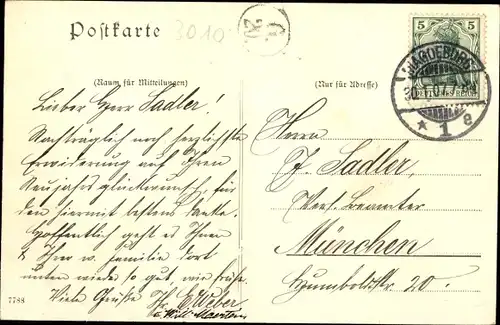 Postkarte
3010
5
DEUTSCHES REICH
MAGDEBURG
* 1 e
(Raum für Mitteilungen)
(Nur für Adresse)
Lieber Herr Sadler!
Nachträglich noch herzlichste
Erwiderung auf Ihren
Neujahrsglückwunsch, für
den hiermit bestens danke.
Hoffentlich geht es Ihnen
& Ihrer w. Familie dort
unten wieder so gut, wie früher.
Viele Grüße Ihr E. Weber
Herrn
F. Sadler,
Vers. Beamter
München
Humboldtstr. 20.
7788